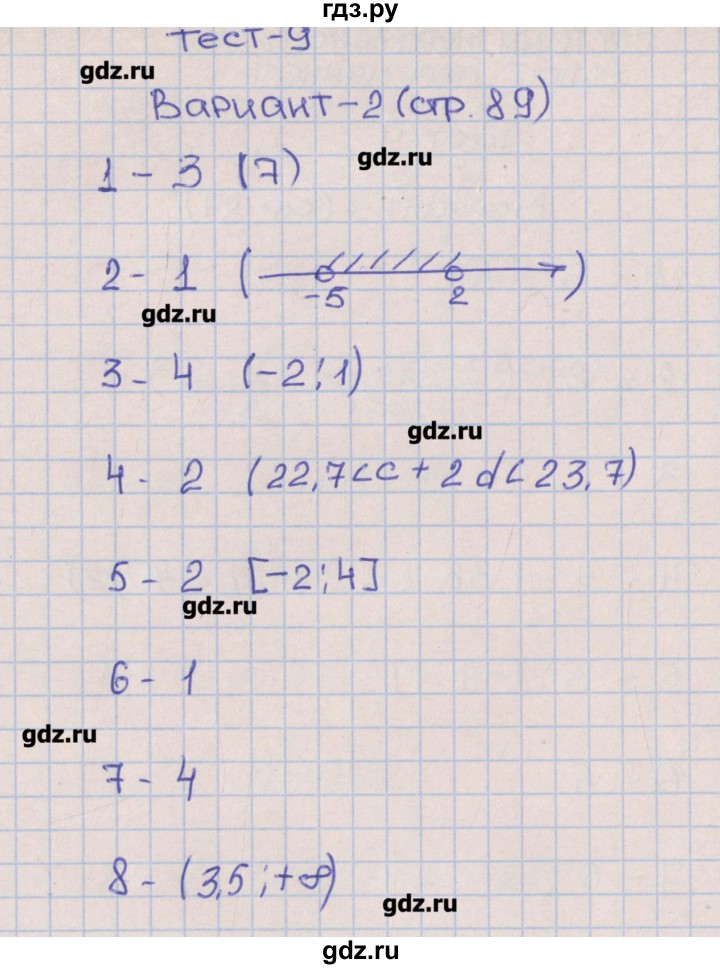 гдз.ру
Тест-9
gdz.ru
Вариант-2 (стр. 89)
gdz.ru
1 - 3 (7)
2 - 1 ( -5 2 )
gdz.ru
3 - 4 (-2; 1)
gdz.ru
4 - 2 (22,7<c + 2d<23,7)
5 - 2 [-2; 4]
gdz.ru
6 - 1
gdz.ru
7 - 4
8 - (3,5; +∞)
gdz.ru
gdz.ru